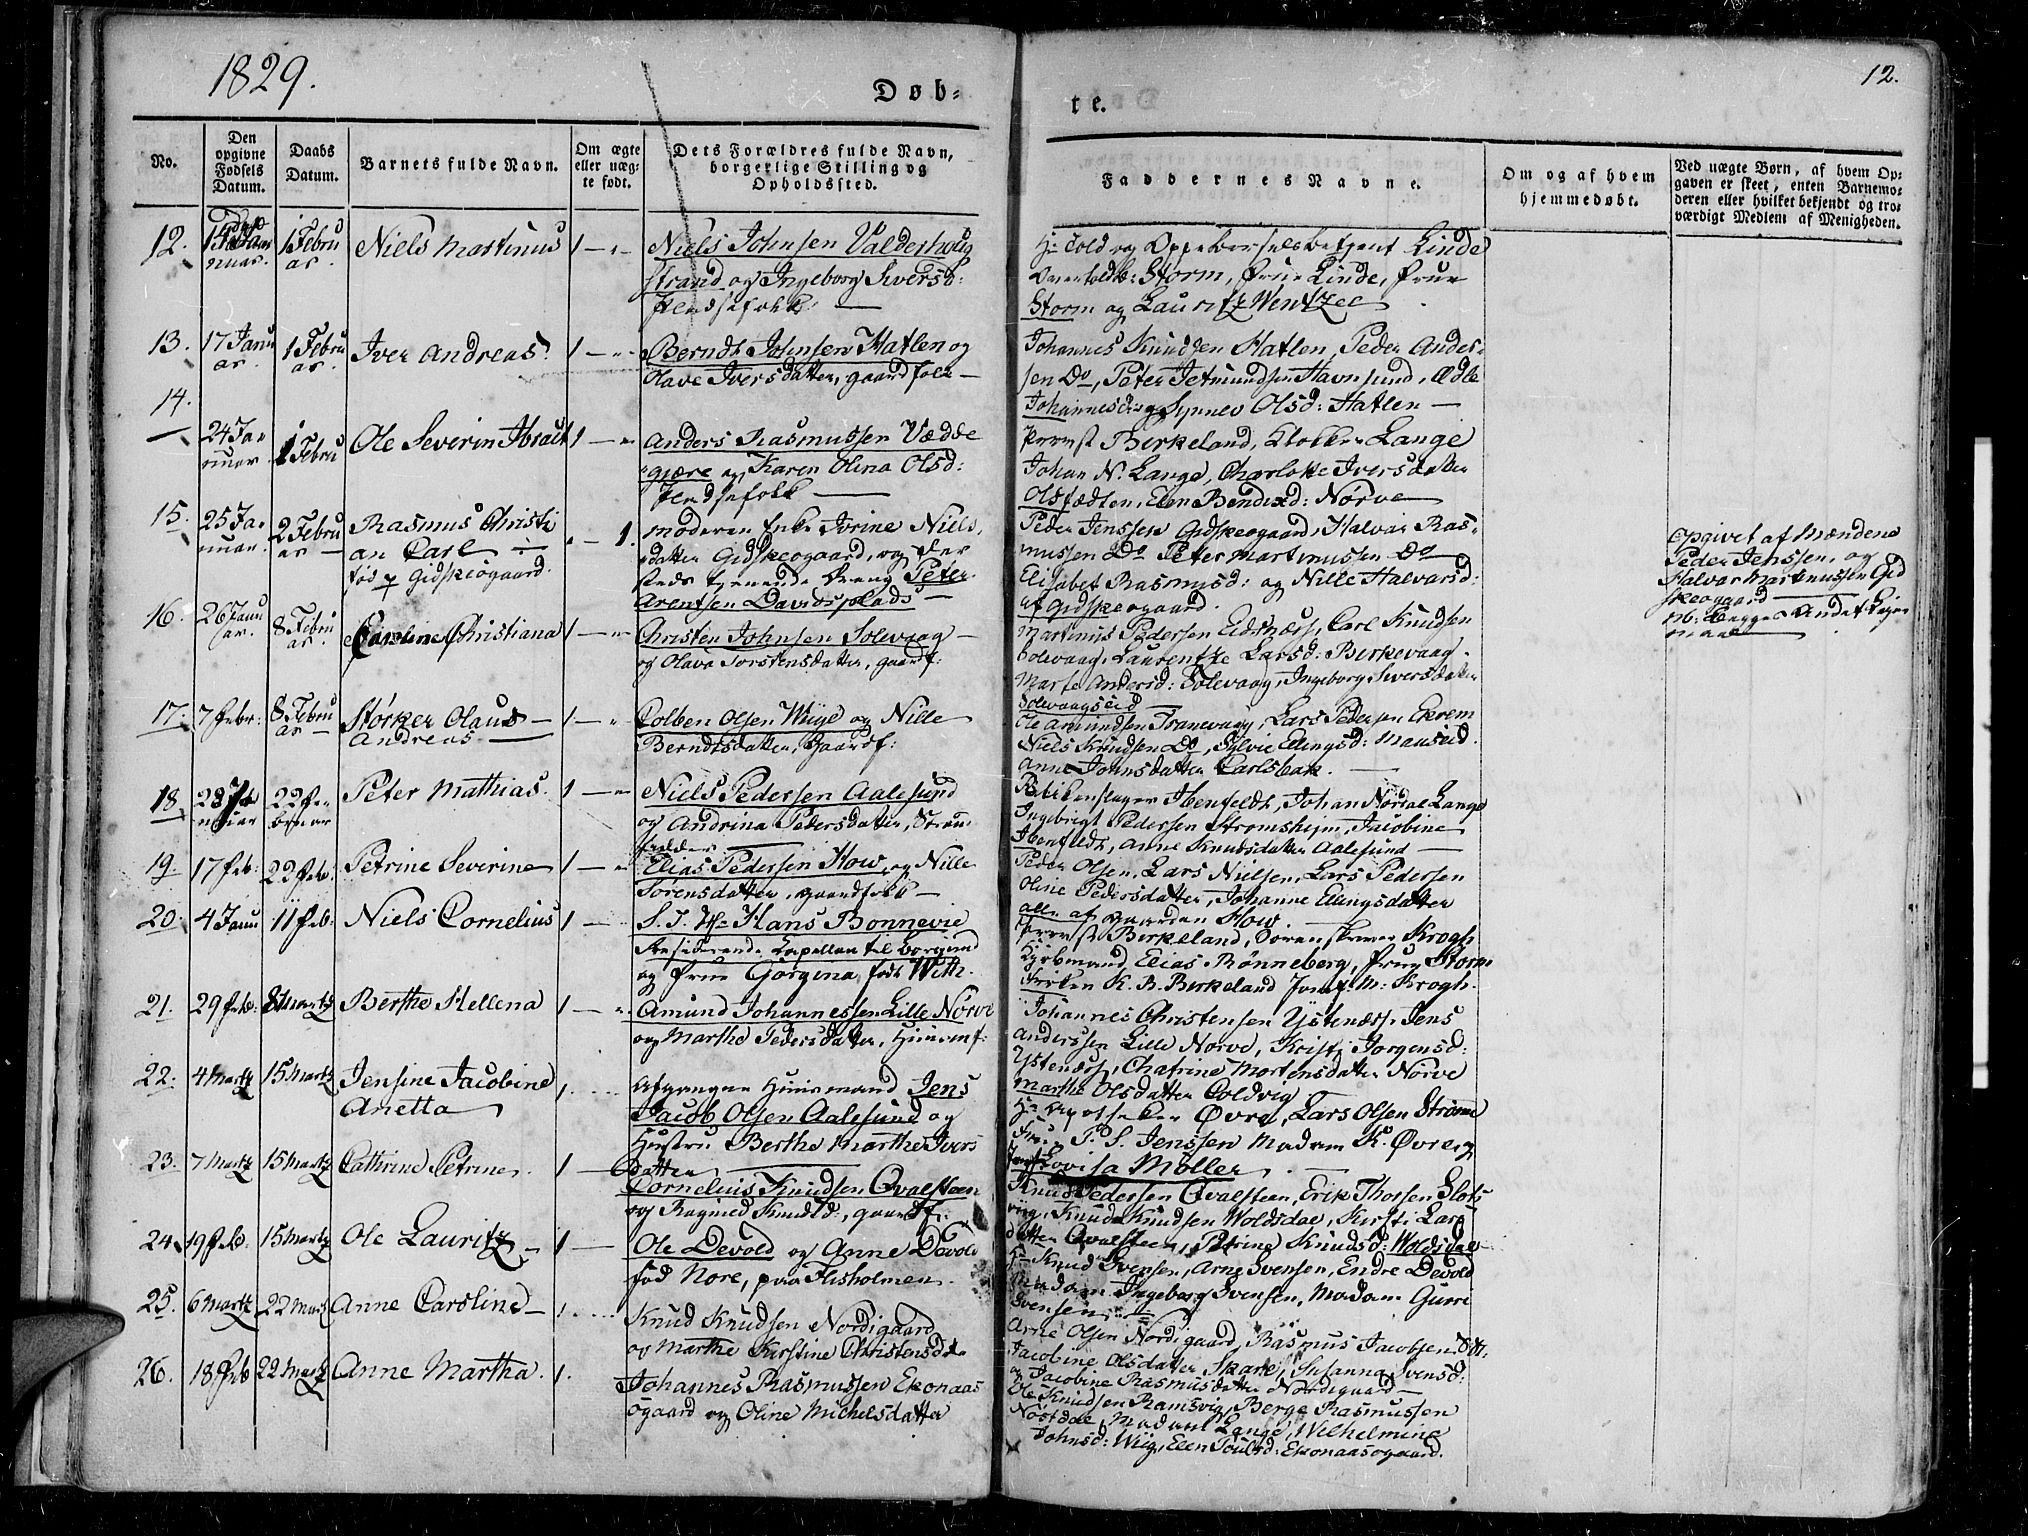 1829.
12.
Døb-
te.
No.
Den opgivne Fødsels Datum.
Daabs Datum.
Barnets fulde Navn.
Om ægte eller uæg-te født.
Dets Forældres fulde Navn, borgerlige Stilling og Opholdssted.
Faddernes Navne.
Om og af hvem hjemmedøbt.
Ved uægte Børn, af hvem Op-gaven er skeet, enten Barnemo-deren eller hvilket bekjendt og tro-værdigt Medlem af Menigheden.
12. nuar. 1 Febru ar Niels Martinus 1 — " —
Niels Johnsen Valderhoug
Strand og Ingeborg Siversd:
Huusfolk
Hr Told og Oppebørselsbetjent Linde
Overtoldb: Storm, Frue Linde, Frue
Storm og Lauritz Wentzel
13. 17 Janu ar. 1 Febru ar. Iver Andreas 1 — "
Berndt Johnsen Hatlen og
Olave Iversdatter, gaardfolk —
Johannes Knudsen Hatlen, Peder Ander-
sen Do, Peter Jetmundsen Havnsund,
Johannesd: og Synnev Olsd: Hatlen —
14. 24 Ja nuar. 1 Febru Ole Severin 1 — "
Anders Rasmussen Vedde
og Karen Olina Olsd:
Provst Birkeland, Klokker Lange
Johan N. Lange, Charlotte Iversdatter
Elen Bendixd: Nørve
15. 25 Ja nuar. 2 Febru ar — Rasmus Christi
an Carl —
fød p Gidskeøgaard.
— 1.
Moderen Enke Iverine Niels
datter Gidskeøgaard, og der
steds tjenende Dreng Peter
Arentsen Davidsplads —
Peder Jenssen Gidskeogaard, Halvar Ras-
mussen Do Peter Martinussen Do
Elisabet Rasmusd: og Nille Halvarsd:
af Gidskeogaard.
Opgivet af Mændene
Peder Jenssen, og
Halvar Martinussen Gid
skeogaard —
16. 26 Janu ar. 8 Febru ar. Caroline Christiana 1 — "
Christen Johnsen Solevaag —
og Olava Torstensdatter, gaardf:
Martinus Pedersen Eidsnæss, Carl Knudsen
Solevaag, Laurentze Larsd: Birkevaag.
Marte Andersd: Solevaag, Ingeborg Siversdatter
Solevaagseid
17. 7 Febr: 8 Febru ar — Størker Olaus —
Andreas —
1 — "
Colben Olsen Wiige og Nille
Berndtsdatter, Gaardf:
Ole Amundsen Tranevaag, Lars Pedersen Ekrem
Niels Knudsen Do, Sylvie Ellingsd: Mauseid.
Anne Johnsdatter Carlsbak. —
18 22 Fe bruar Peter Mathias. 1 — "
Niels Pedersen Aalesund
og Andrina Pedersdatter,
Johan Nordal Lange
Ingebrigt Pedersen Strømsheim, Jacobine
Anne Knudsdatter Aalesund —
19 17 Feb: 22 Feb. Petrine Severine 1 — "
Elias Pedersen How, og Nille
Sørensdatter, gaardfolk —
Peder Olsen, Lars Nielsen, Lars Pedersen
Oline Pedersdatter, Johanne Ellingsdatter
alle af gaarden How.
20. 4 Janu 11 Feb: Niels Cornelius 1 —
S. T. Hr Hans Bonnevie
Residerende Capellan til Borgund
og Frue Gørgina, født With.
Provst Birkeland, Sorenskriver Krogh
Kjøbmand Elias Rønneberg, Frue Storm
Frøken K. B. Birkeland Jomf. M. Krogh.
21. 29 Feb: 8 Martz Berthe Hellena 1 — "
Amund Johannessen Lille Nørve
og Marthe Pedersdatter, Huusmf:
Johannes Christensen Ystenæss, Jens
Anderssen Lille Nørve, Kristi Jørgensd:
Ystenæss, Chatrine Mortensdatter Nørve
Marthe Olsdatter Coldvig
22. 4 Martz 15 Martz Jensine Jacobine
Anetta
1. ....
Afgangne Huusmand Jens
Jacob Olsen Aalesund og
Hustru Berthe Marthe Ivers
datter
Øvre, Lars Olsen Strøme
P. S. Jenssen Madam K. Øvre og
Lovisa Møller
23. 7 Martz 15 Martz Cathrine Petrine. 1 —
Cornelius Knudsen Qvalsteen
og Ragnild Knudsd:, gaardf.
Knud Pedersen Qvalsteen, Erik Thorsen Slots
vig, Knud Knudsen Woldsdal, Kirsti Lars
datter Qvalsteen, Petrine Knudsd: Woldsdal
24. 19 Feb 15 Martz Ole Lauritz 1 —
Ole Devold og Anne Devold
fød Nore, paa Flisholmen.
Hr Knud Svensen, Arne Svensen, Endre Devold
Madam Ingeborg Svensen, Madam Gurri
Svensen
25. 6 Martz 22 Marts Anne Caroline — 1. ....
Knud Knudsen Nordigaard
og Marthe Kirstine Christensdr
Arne Olsen Nordigaard, Rasmus Jacobsen
Jacobine Olsdatter Skare, Susanna Svensd:
og Jacobine Rasmusdatter Nordigaard —
26. 18 Feb 22 Martz Anne Martha. 1.
Johannes Rasmussen Ekonaas
ogaard og Oline Michelsdatter
Ole Knudsen Ramsvig, Berge Rasmussen
Nøstdal, Madam Lange, Wilhelmine
Johnsd: Wiig, Elen Poulsd: Ekonaasogaard.